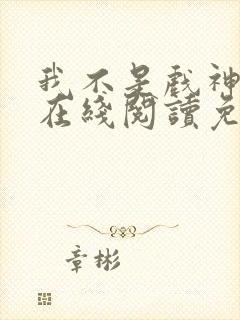 我不是戲神
在綫閱讀免
章彬